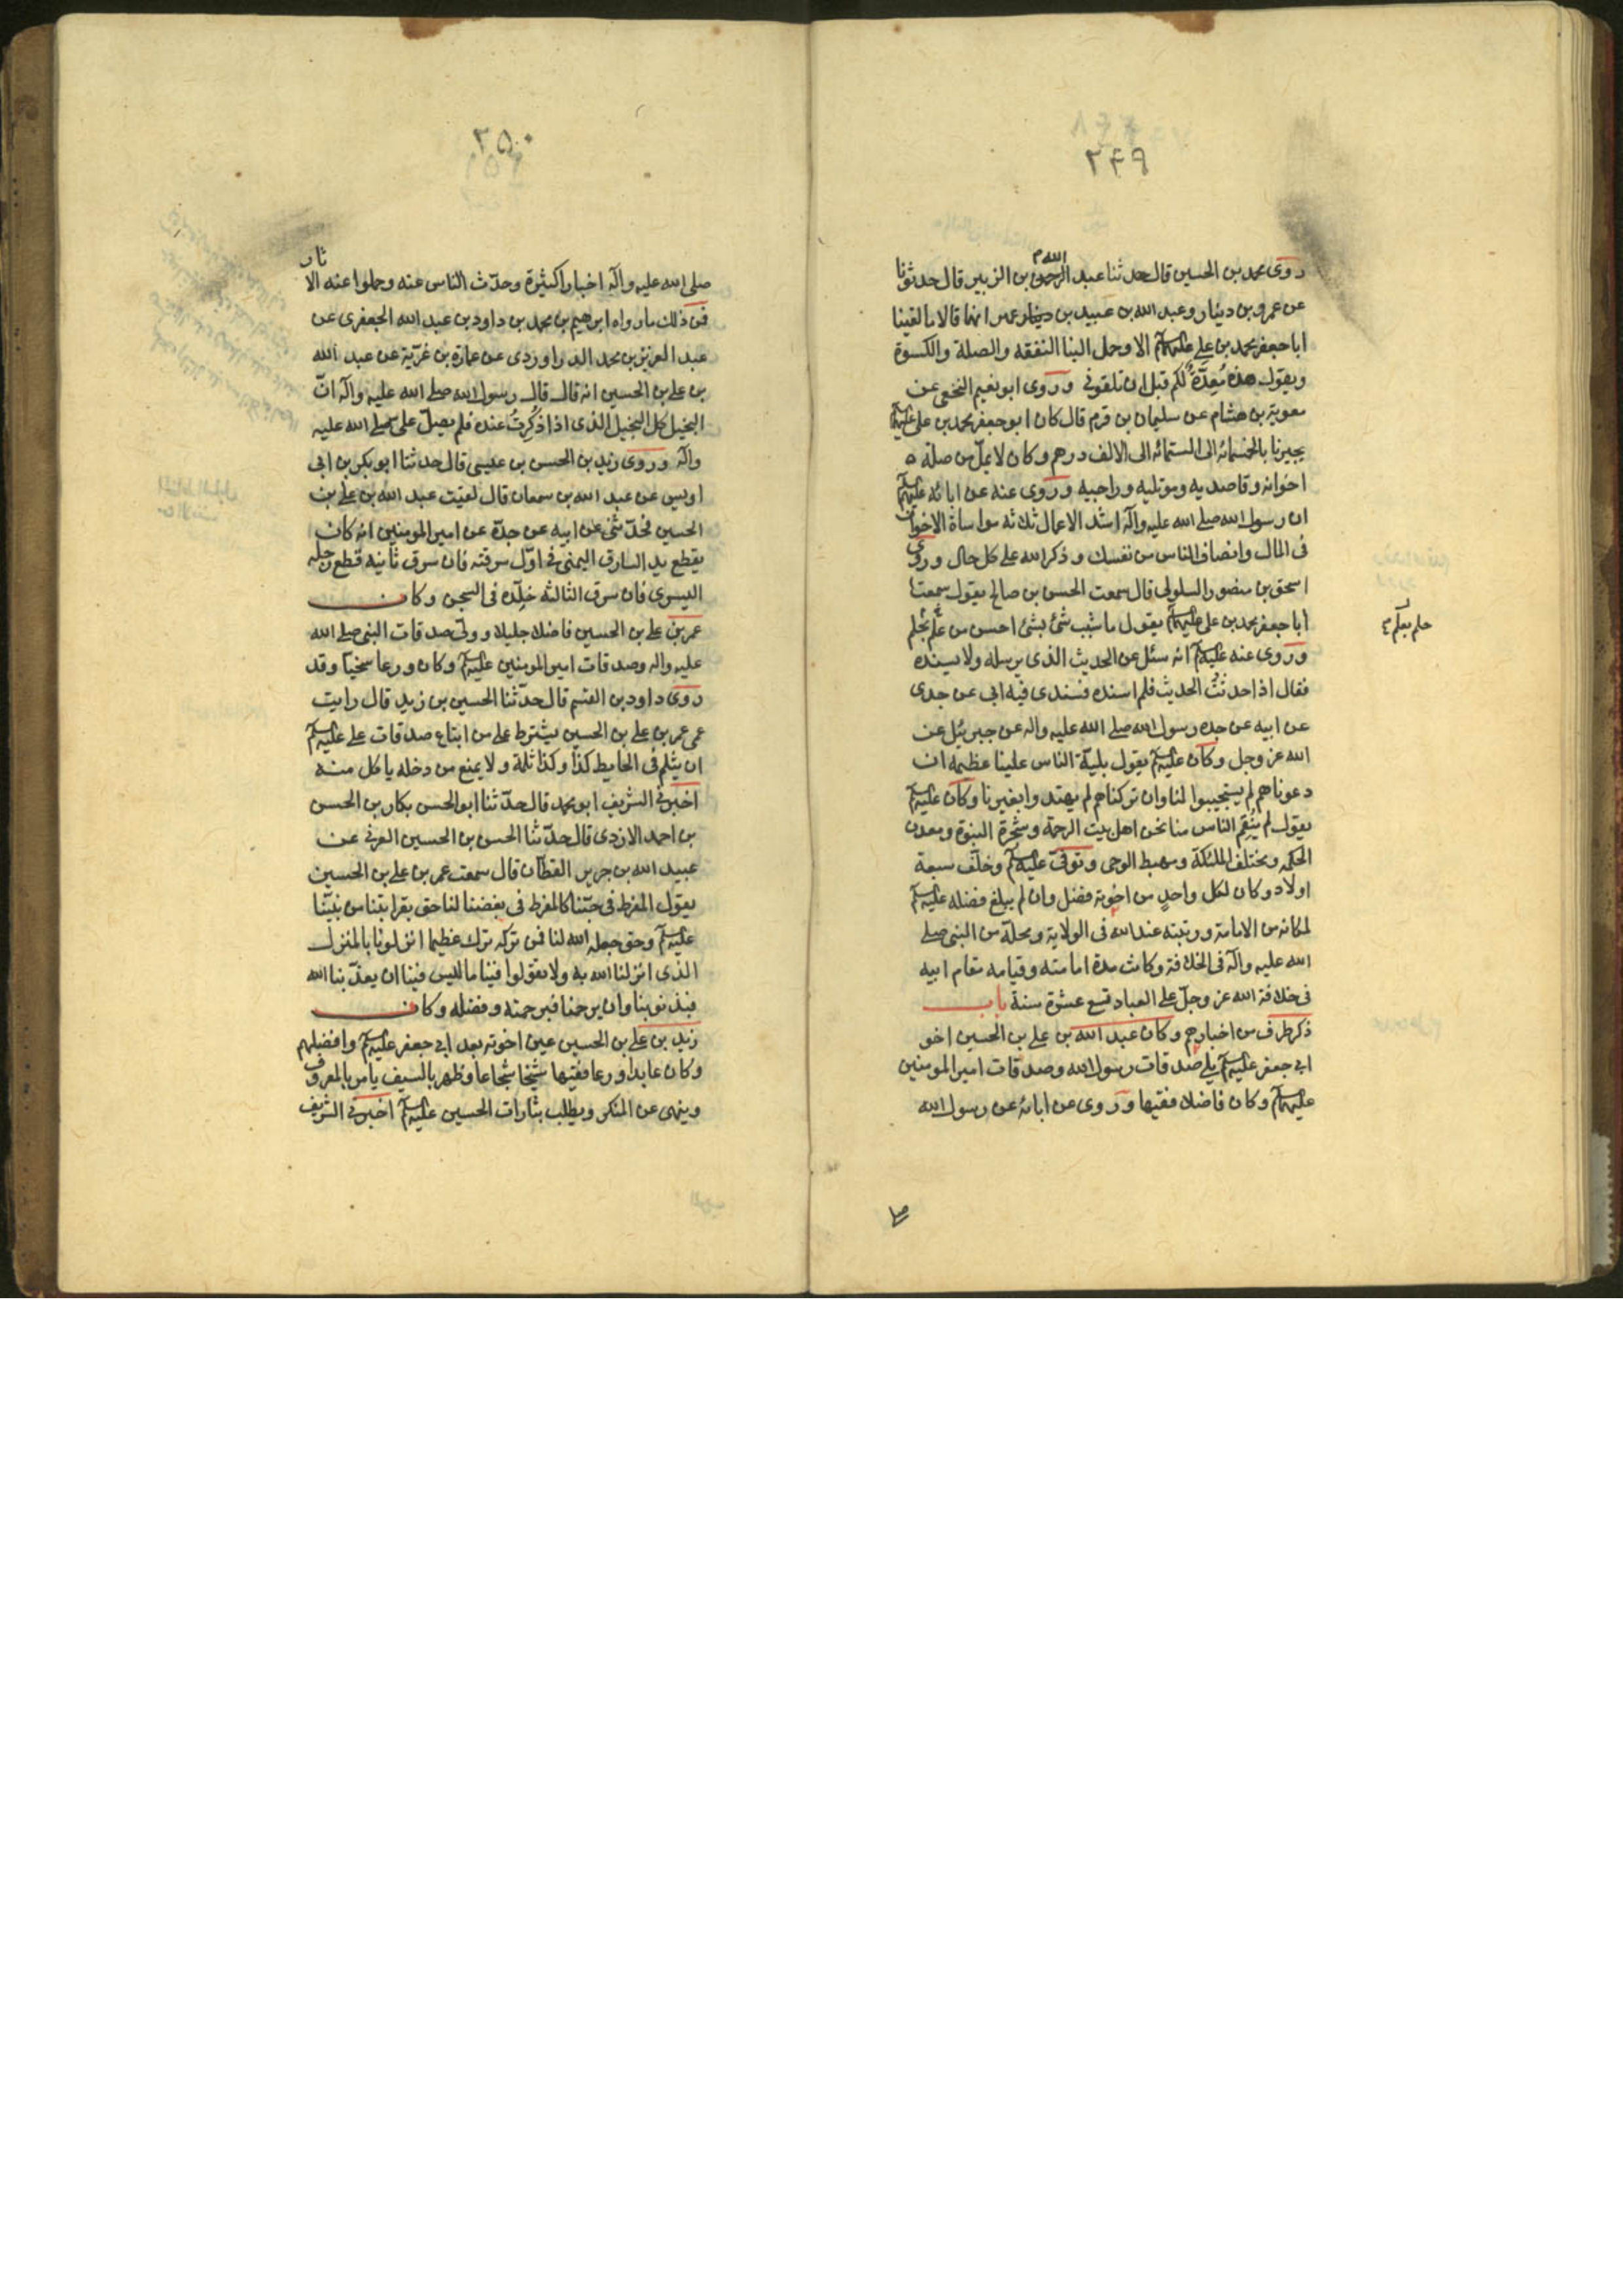 ٢٤٩
روى محمد بن الحسين قال حدثنا عبد الله بن الزبير قال حدثونا
عن عمرو بن دينار وعبد الله بن عبيد بن عمير انهما قالا ما لقينا
ابا جعفر محمد بن علي عليهما السلام الا وحمل الينا النفقه والصلة والكسوة
ويقول هذه مُعِدّةٌ لكم قبل ان تلقوني وروى ابو نعيم النخعي عن
معوية بن هشام عن سليمان بن قرم قال كان ابو جعفر محمد بن علي عليهما السلام
يجيزنا بالخمسمائه الى الستمائه الى الالف درهم وكان لا يملّ من صلة
اخوانه وقاصديه ومومليه وراجيه وروى عنه عن ابائه عليهم السلام
ان رسول الله صلى الله عليه وآله اشد الاعمال ثلثه مواساة الاخوان
فى المال وانصاف الناس من نفسك وذكر الله على كل حال وروى
اسحق بن منصور السلولي قال سمعت الحسن بن صالح يقول سمعت
أبا جعفر محمد بن علي عليهما السلام يقول ما شيب شئ بشئ احسن من علم بحلم
حلم بعلم
وروى عنه عليه السلام انه سئل عن الحديث الذى يرسله ولا يسنده
فقال اذا حدثتُ الحديث فلم اسنده فسندى فيه ابي عن جدى
عن ابيه عن جده رسول الله صلى الله عليه واله عن جبرئيل عن
الله عز وجل وكان عليه السلام يقول بليّة الناس علينا عظيمه ان
دعوناهم لم يستجيبوا لنا وان تركناهم لم يهتدوا بغيرنا وكان عليه السلام
يقول لم ينقم الناس منا نحن اهل بيت الرحمة وشجرة النبوة ومعدن
الحكمه ومختلف الملئكة ومهبط الوحى وتوفّى عليه السلام وخلّف سبعة
اولاد وكان لكل واحدٍ من اخوته فضل وان لم يبلغ فضله عليه السلام
لمكانه من الامامة ورتبته عند الله فى الولاية ومحلّه من النبي صلى
الله عليه وآله فى الخلافة وكانت مدة امامته وقيامه مقام ابيه
فى خلافة الله عز وجلّ على العباد تسع عشرة سنة باب
ذكر طرف من اخبارهم وكان عبد الله بن علي بن الحسين اخو
ابي جعفر عليه السلام يلى صدقات رسول الله وصدقات امير المومنين
عليهما السلام وكان فاضلا فقيها وروى عن ابائه عن رسول الله
صلى
٢٥٠
صلى الله عليه وآله اخبارا كثيرة وحدّث الناس عنه وحملوا عنه الاثار
فمن ذلك ما رواه ابرهيم بن محمد بن داود بن عبد الله الجعفرى عن
عبد العزيز بن محمد الدراوردى عن عمارة بن غزيّة عن عبد الله
بن علي بن الحسين انه قال قال رسول الله صلى الله عليه وآله انّ
البخيل كل البخيل الذى اذا ذُكِرتُ عنده فلم يصلّ علىّ صلى الله عليه
وآله وروى زيد بن الحسن بن عيسى قال حدثنا ابو بكر بن ابى
اويس عن عبد الله بن سمعان قال لقيت عبد الله بن علي بن
الحسين فحدّثنى عن ابيه عن جدّه عن امير المومنين انه كان
يقطع يد السارق اليمنى فى اوّل سرقته فان سرق ثانيه قطع رجله
اليسرى فان سرق الثالثه خلّده فى السجن وكان
عمر بن علي بن الحسين فاضلا جليلا وولّى صدقات النبي صلى الله
عليه واله وصدقات امير المومنين عليه السلام وكان ورعا سخيّا وقد
روى داود بن القسم قال حدّثنا الحسين بن زيد قال رايت
عمى عمر بن علي بن الحسين يشترط على من ابتاع صدقات علي عليه السلام
ان يثلم فى الحايط كذا وكذا ثلمة ولا يمنع من دخله ياكل منه
اخبرنى الشريف ابو محمد قال حدّثنا ابو الحسن بكار بن الحسن
بن احمد الازدى قال حدّثنا الحسن بن الحسين العرنى عن
عبيد الله بن جرير القطّان قال سمعت عمر بن علي بن الحسين
يقول المفرط فى حبّنا كالمفرط فى بغضنا لنا حق بقرابتنا من نبيّنا
عليه السلام وحق جعله الله لنا فمن تركه ترك عظيما انزلونا بالمنزل
الذى انزلنا الله به ولا تقولوا فينا ما ليس فينا ان يعذّبنا الله
فبذنوبنا وان يرحمنا فبرحمته وفضله وكان
زيد بن علي بن الحسين عين اخوته بعد ابى جعفر عليه السلام وافضلهم
وكان عابدا ورعا فقيها شيخا شجاعا وظهر بالسيف يامر بالمعروف
وينهى عن المنكر ويطلب بثارات الحسين عليه السلام اخبرنى الشريف